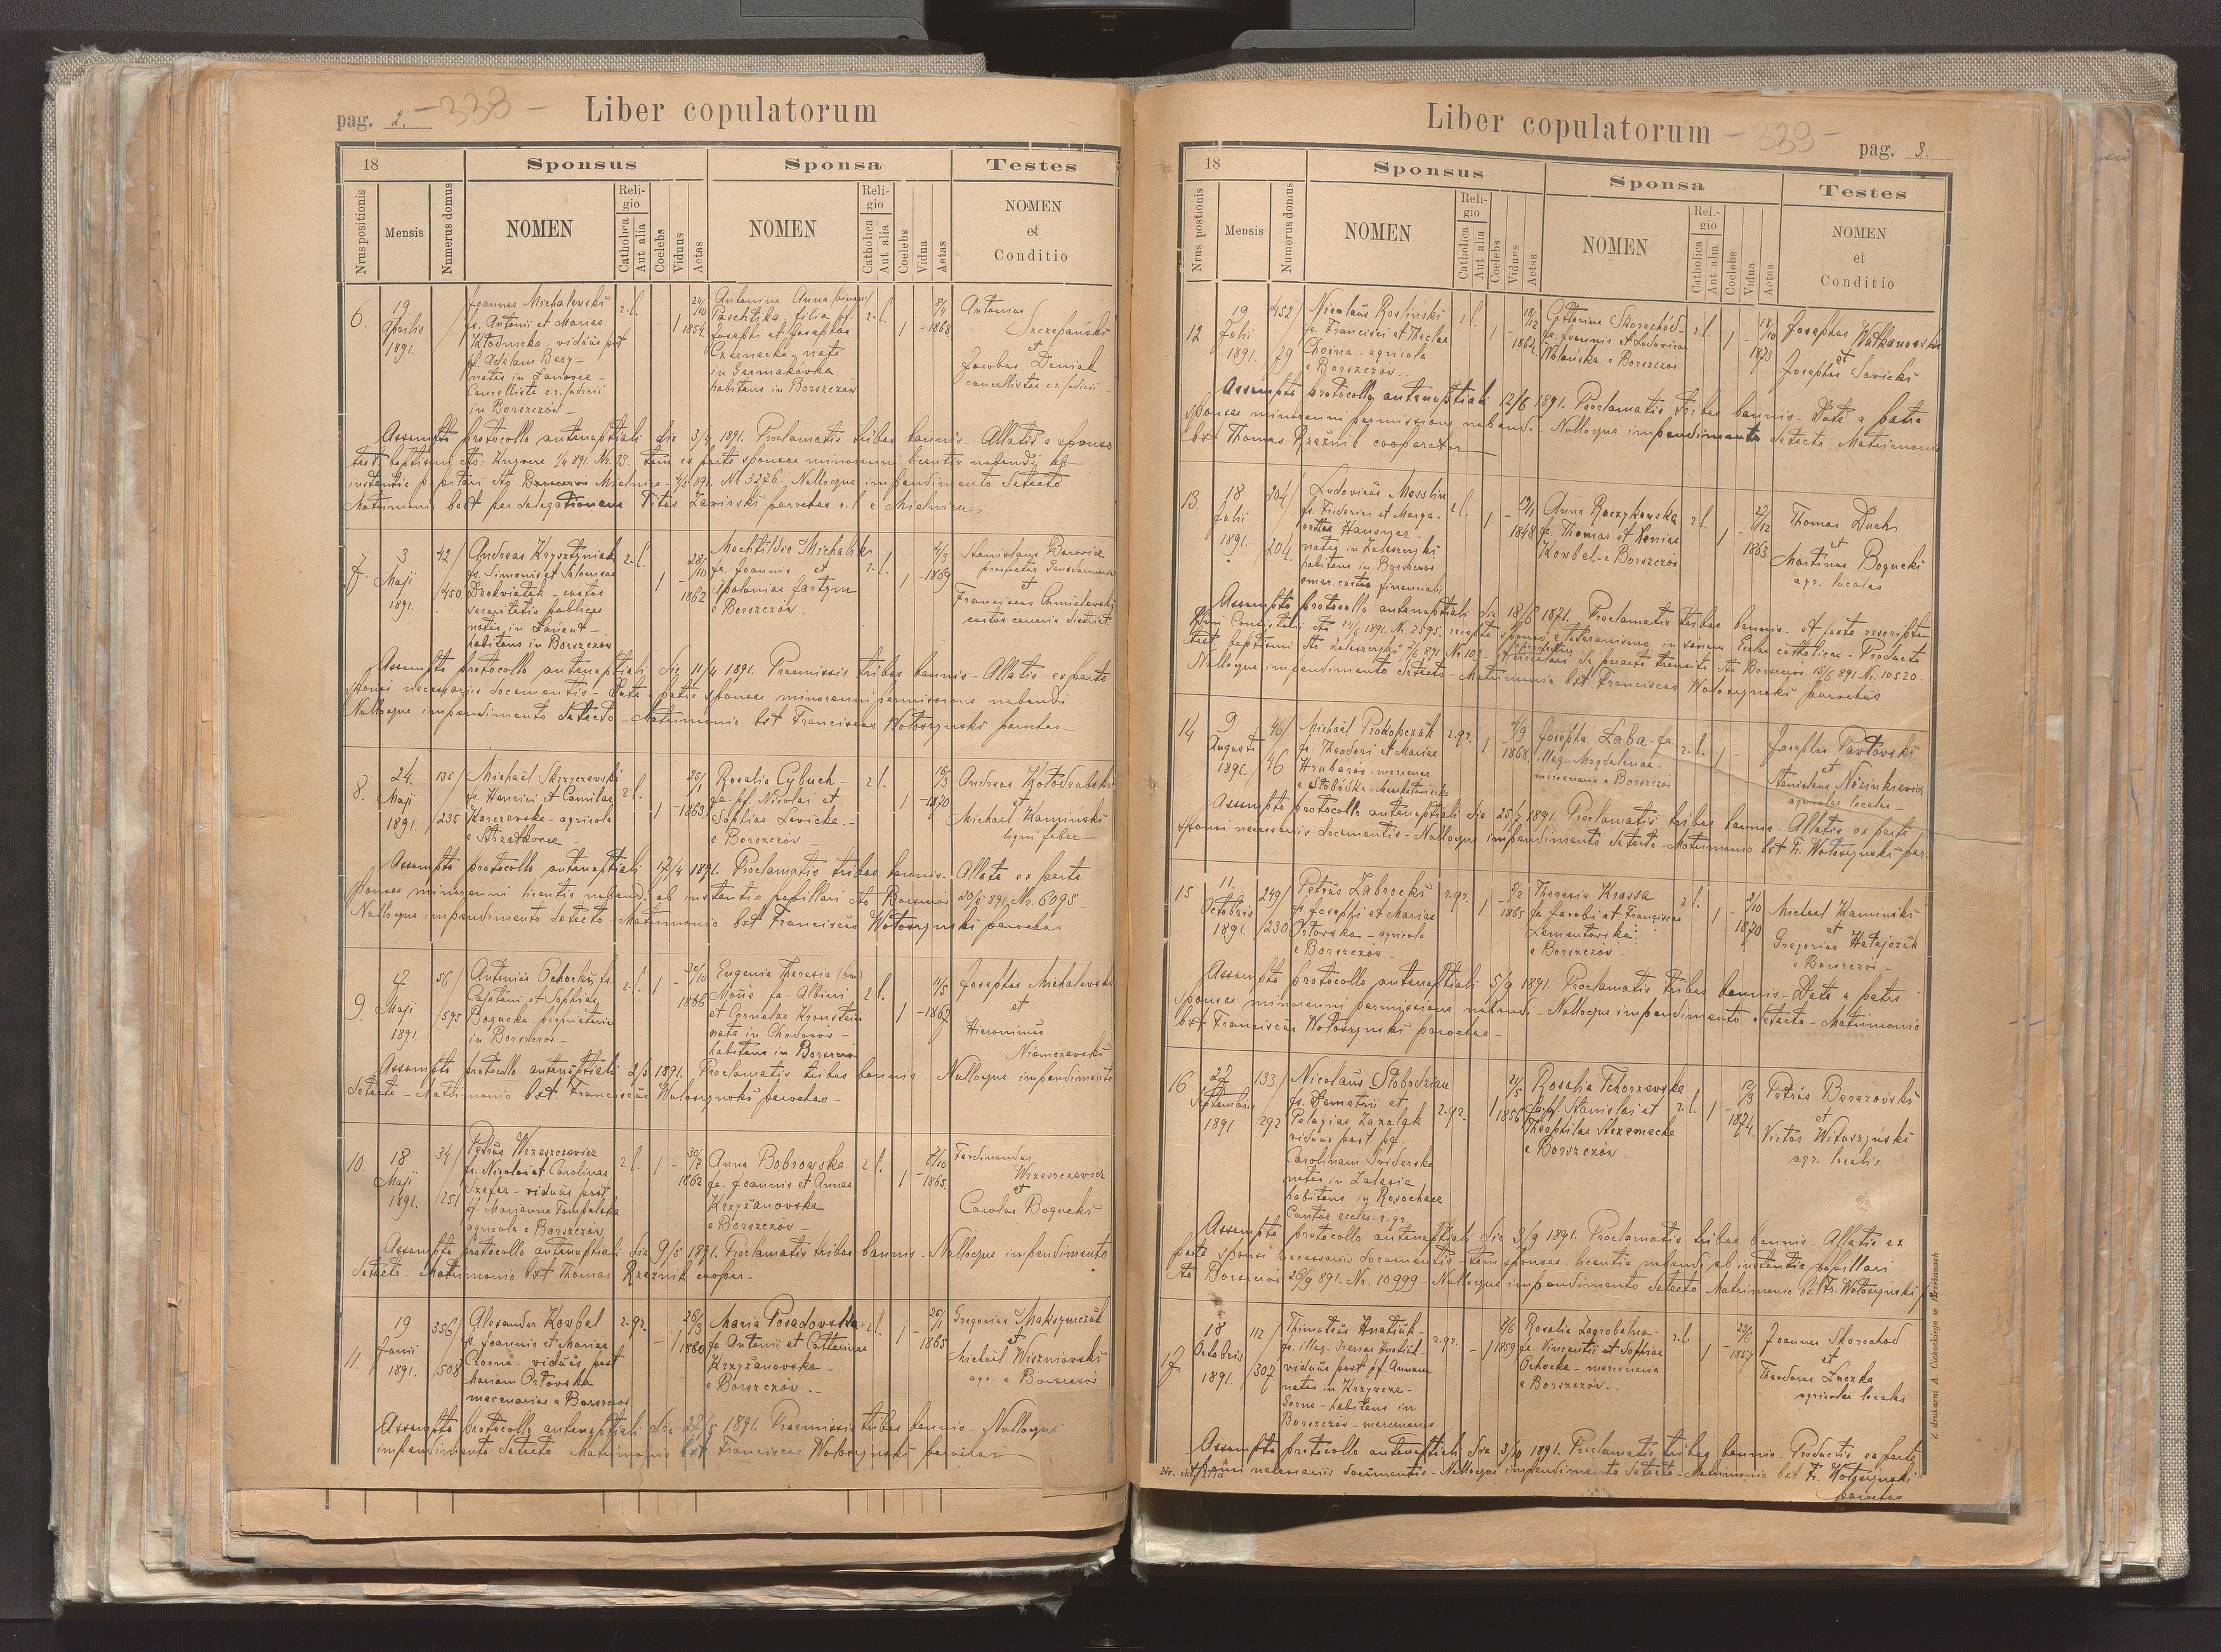 pag. 2. - 338 -
Liber copulatorum
18
Sponsus
Sponsa
Testes
Nrus positionis
Mensis
Numerus domus
NOMEN
Religio
Catholica
Aut alia
Coelebs
Viduus
Aetas
NOMEN
Religio
Catholica
Aut alia
Coelebs
Vidua
Aetas
NOMEN
et
Conditio
6.
19
Aprilis
1891.
Joannes Michalewski
fs. Antonii et Mariae
Kłodnicka - viduus post
pf. Adelam Berg -
natus in Łanowce -
Cancellista c.r. Judicii
in Borszczów -
r.l.
1
24/10
1854.
Antonina Anna
Paschtika, filia pf.
Josephi et Josephae
Czarnecka - nata
in Germakówka
habitans in Borszczów
r.l.
1
1868
Antonius
Szczepański
et
Jacobus Daniak
cancellistae c.r. Judicii -
Assumpto protocollo antenuptiali die 3/4 1891. Proclamatis tribus bannis - Allatis e sponso
test. baptismi
instantia Mielnica - Nr. 3276 - Nulloque impedimento detecto
Matrimonio bxt per delegationem Titus Zawirski parochus r.l. e Mielnica
7.
3
Maji
1891.
42/
450
Andreas Krysztyniak
fs. Simonis et Salomeae
Drohwiatek - custos
securitatis publicae
natus in Łańcut -
habitans in Borszczów
r.l.
1 -
28/10
1862
Mechtildis Michalska
fa. Joannis et
Apoloniae Jartym
e Borszczów -
r.l.
1 -
4/3
1869
Stanislaus Borowicz
et
Franciscus Chmielewski
custos
Assumpto protocollo antenuptiali die 11/4 1891. Praemissis tribus bannis - Allatis ex parte
sponsi necessariis documentis - Data a patre sponsae minorenni permissione nubendi
Nulloque impedimento detecto - Matrimonio bxt Franciscus Wołoszyński parochus -
8.
24.
Maji
1891.
135/
235
Michael Skrzyczewski
fs. Henrici et Camilae
Karczewska - agricola
e Strzałkowce
r.l.
1 -
25/1
1863
Rosalia Cybuch -
fa. pf. Nicolai et
Sophiae Levicka -
e Borszczów -
r.l.
1
15/3
1870
Andreas Kołodrubski
et
Michael Kamiński
ligni faber -
Assumpto protocollo antenuptiali 17/4 1891. Proclamatis tribus bannis - Allata ex parte
sponsae minorenni licentia nubendi ab instantia pupillari dto Borszczów 20/5 891, Nr. 6095 -
Nulloque impedimento detecto - Matrimonio bxt Franciscus Wołoszyński parochus
9.
17
Maji
1891.
56/
595
Antonius Ochocki fs.
Cajetani et Sophiae
Bogucka - proprietarius
in Borszczów -
r.l.
1 -
30/10
1866
Eugenia Theresia
Moüe - fa. Albini
et Corneliae Kronstein
nata in Chodorów -
habitans in Borszczów
r.l.
1
11/5
1867
Josephus Michalewski
et
Hieronimus
Niemczewski
Assumpto protocollo antenuptiali 2/5 1891. Proclamatis tribus bannis - Nulloque impedimento
detecto - Matrimonio bxt. Franciscus Wołoszyński parochus -
10.
18
Maji
1891.
34/
251
Petrus Wrzeszczewicz
fs. Nicolai et Carolinae
Szefer - viduus post
pf. Mariannam Tompalska
agricola e Borszczów
r.l.
1 -
30/7
1862
Anna Bobrowska
fa. Joannis et Annae
Krzyżanowska
e Borszczów -
r.l.
1
7/10
1865.
Ferdinandus
Wrzeszczewicz
et
Carolus Bogucki
Assumpto protocollo antenuptiali die 9/5 1891. Proclamatis tribus bannis - Nulloque impedimento
detecto - Matrimonio bxt Thomas Rzeźnik cooper. -
11.
19
Junii
1891.
356/
508
Alexander Kowbel
fs. Joannis et Mariae
Czorna - viduus post
Mariam Orłowska
mercenarius e Borszczów
r.gr.
- 1
26/3
1860
Maria Posadowska
fa. Antonii et Catharinae
Krzyżanowska -
e Borszczów -
r.l.
1 -
25/1
1865
Gregorius Maksymczuk
et
Michael Wiszniowski
agr. e Borszczów
Assumpto protocollo antenuptiali die 27/5 1891. Praemissis tribus bannis - Nulloque
impedimento detecto - Matrimonio bxt Franciscus Wołoszyński parochus
Liber copulatorum - 339 -
pag. 3.
18
Sponsus
Sponsa
Testes
Nrus positionis
Mensis
Numerus domus
NOMEN
Religio
Catholica
Aut alia
Coelebs
Viduus
Aetas
NOMEN
Religio
Catholica
Aut alia
Coelebs
Vidua
Aetas
NOMEN
et
Conditio
12
19
Julii
1891.
452/
79
Nicolaus Rosliński
fs. Francisci et Theclae
Choina - agricola
e Borszczów -
r.l.
1 -
18/12
1862.
Catharina Skorochód -
fa. Joannis et Ludovicae
Wolańska e Borszczów
r.l.
1 -
18/10
1873
Josephus Wołkanowski
et
Josephus Sawicki
Assumpto protocollo antenuptiali 12/6 1891. Proclamatis tribus bannis - Data a patre
sponsae minorenni permissione nubendi - Nulloque impedimento detecto - Matrimonio
bxt Thomas Rzeźnik cooperator
13
18
Julii
1891.
204/
204.
Ludovicus Messlin
fs. Friderici et Marga-
rethae Hausner -
natus in Zaleszczyki
habitans in Borszczów
emer. custos financialis
r.l.
1 -
19/1
1848
Anna Raczykowska
fa. Thomae et Xeniae
Kowbel - e Borszczów
r.l.
1 -
27/12
1863
Thomas Duch
et
Martinus Bogucki
agr. locales
Assumpto protocollo antenuptiali die 18/6 1871. Proclamatis tribus bannis - et juxta rescriptum
Rmi Consistorii dto 24/6 1891. Nr. 2595. recepto sponso e luteranismo in sinum Eccles. catholicae - Producto
test. baptismi dto Zaleszczyki Nr. 102 - de peracto transitu dto Borszczów 15/6 891 Nr. 10520 -
Nulloque impedimento detecto - Matrimonio bxt Franciscus Wołoszyński parochus
14
9
Augusti
1891.
46/
46
Michael Prokopczuk
fs. Theodori et Mariae
Hrubarów - mercenar.
e Słobódka
r.gr.
1 -
4/9
1868.
Josepha Łaba - fa
illeg. Magdalenae -
mercenaria e Borszczów
r.l.
1 -
Josephus Pawłowski
et
Stanislaus Nizinkiewicz
agricolae locales -
Assumpto protocollo antenuptiali die 25/7 1891. Proclamatis tribus bannis - Allatis ex parte
sponsi necessariis documentis - Nulloque impedimento detecto - Matrimonio bxt Fr. Wołoszyński par.
15
11.
Octobris
1891.
249/
230
Petrus Zabrocki
fs Josephi et Mariae
Orłowska - agricola
e Borszczów -
r.gr.
1 -
5/2
1865
Theresia Krassa
fa Jacobi et Franciscae
Lamentowska
e Borszczów -
r.l.
1 -
2/10
1870
Michael Kamiński
et
Gregorius Hałajczuk
e Borszczów -
Assumpto protocollo antenuptiali 5/9 1891. Proclamatis tribus bannis - Data a patre
sponsae minorenni permissione nubendi - Nulloque impedimento detecto - Matrimonio
bxt Franciscus Wołoszyński parochus -
16
27
Septembris
1891
133/
292
Nicolaus Słobodzian
fs. Demetrii et
Pelagiae Zazalak
viduus post pf.
Carolinam Sviderska
natus in Zalesie
habitans in Rosochacz
Cantor eccles. r. gr.
r.gr.
1
21/5
1856
Rosalia Tchorzewska
fa pf. Stanislai et
Theophilae Strzemecka
e Borszczów -
r.l.
1 -
12/3
1874.
Petrus Berezowski
et
Victor Witoszyński
agr. localis
Assumpto protocollo antenuptiali die 3/9 1891. Proclamatis tribus bannis - Allatis ex
parte sponsi necessariis documentis - tum sponsae licentia nubendi ab instantia pupillari
dto Borszczów 26/9 891. Nr. 10999 - Nulloque impedimento detecto Matrimonio bxt Fr. Wołoszyński
17.
18
Octobris
1891.
112/
307
Thimoteus Hnatiuk -
fs. illeg. Irenae Hnatiuk -
viduus post pf. Annam
natus in Krzywcze -
Górne - habitans in
Borszczów - mercenarius
r.gr.
- 1
7/6
1859
Rosalia Zagrobelna -
fa. Vincentii et Sophiae
Ochocka - mercenaria
e Borszczów -
r.l.
1 -
23/6
1857
Joannes Skorochod
et
Theodorus Luczka
agricolae locales
Assumpto protocollo antenuptiali die 3/10 1891. Proclamatis tribus bannis - Productis ex parte
sponsi necessariis documentis - Nulloque impedimento detecto - Matrimonio bxt Fr. Wołoszyński
parochus
Z drukarni A. Cichockiego w Brzeżanach